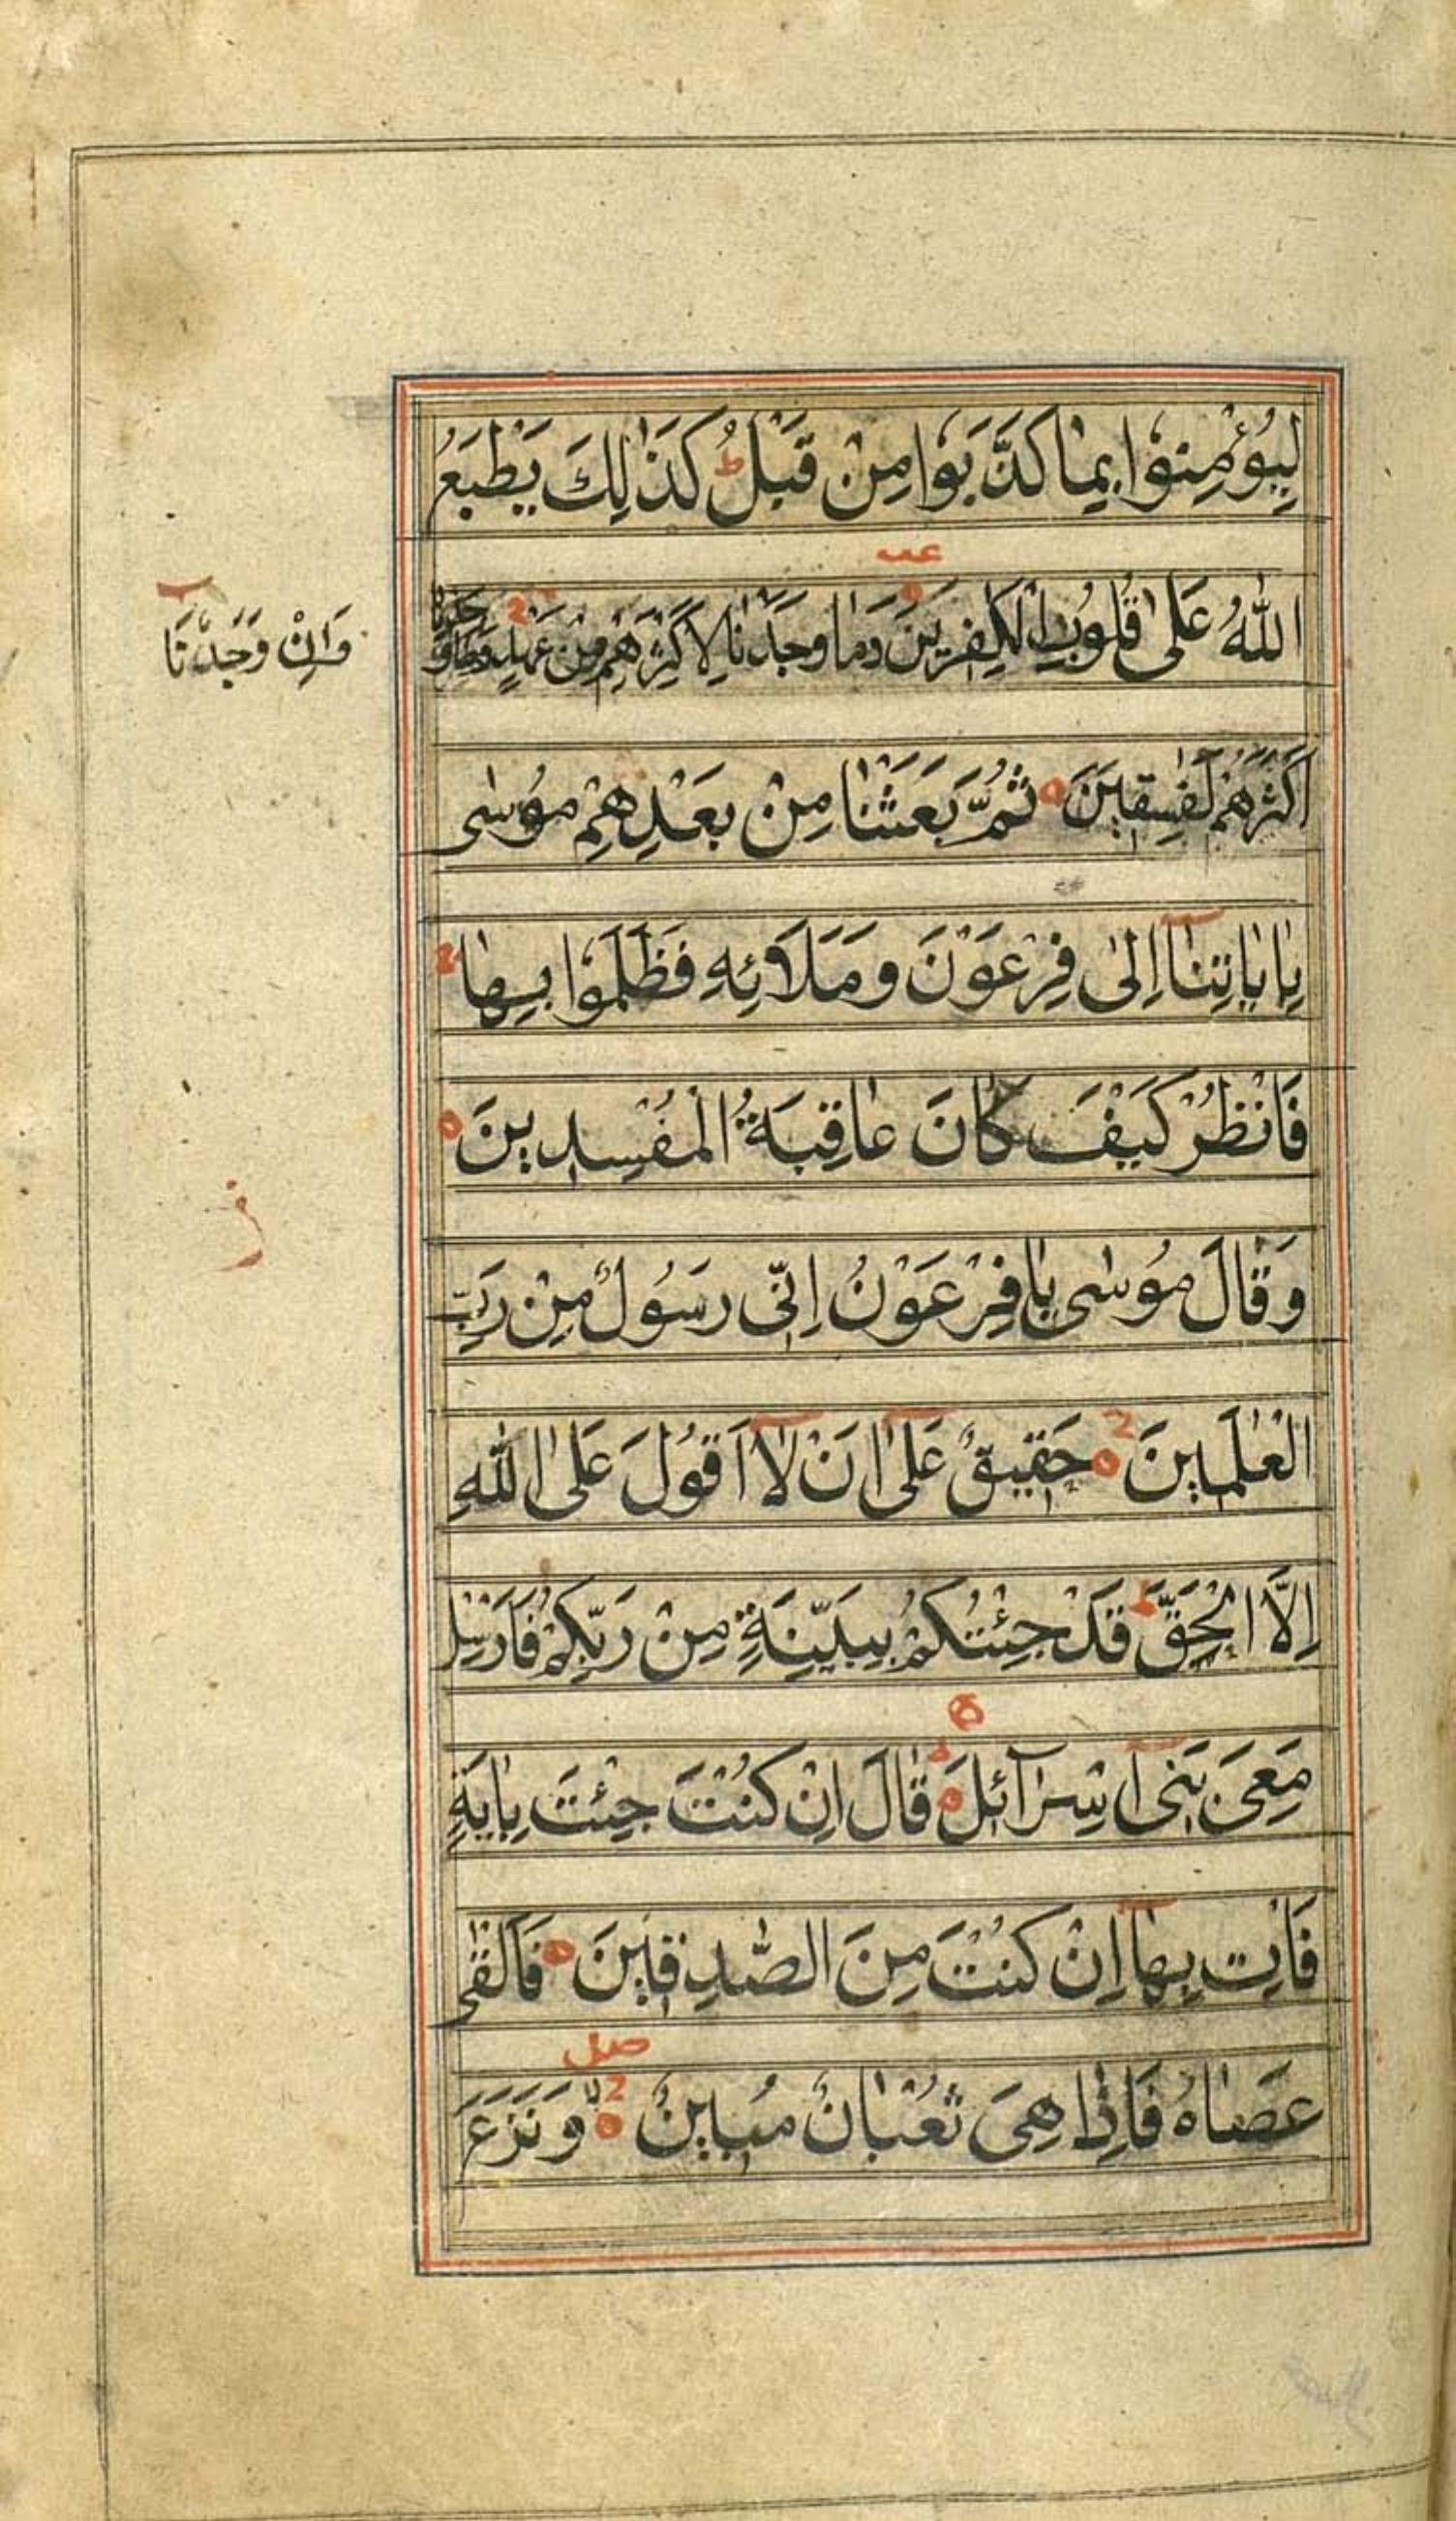 لِيُؤْمِنُوْا بِمَا كَذَّبَوْا مِنْ قَبْلُ ط كَذٰلِكَ يَطْبَعُ
عب
اللّٰهُ عَلٰى قُلُوْبِ الْكٰفِرِيْنَ وَمَا وَجَدْنَا لِاَكْثَرِهِمْ مِنْ عَهْدٍ
وَاِنْ وَجَدْنَا
اَكْثَرَهُمْ لَفٰسِقِيْنَ ثُمَّ بَعَثْنَا مِنْ بَعْدِهِمْ مُوْسٰى
بِاٰيَاتِنَآ اِلٰى فِرْعَوْنَ وَمَلَائِهِ فَظَلَمُوْا بِهَا
فَانْظُرْ كَيْفَ كَانَ عَاقِبَةُ الْمُفْسِدِيْنَ
وَقَالَ مُوْسٰى يَافِرْعَوْنُ اِنِّى رَسُوْلٌ مِنْ رَبِّ
الْعٰلَمِيْنَ حَقِيْقٌ عَلٰٓى اَنْ لَآ اَقُوْلَ عَلَى اللّٰهِ
اِلَّا الْحَقَّ قَدْ جِئْتُكُمْ بِبَيِّنَةٍ مِنْ رَبِّكُمْ فَاَرْسِلْ
مَعِىَ بَنِىٓ اِسْرَآئِلَ قَالَ اِنْ كُنْتَ جِئْتَ بِاٰيَةٍ
فَاْتِ بِهَآ اِنْ كُنْتَ مِنَ الصّٰدِقِيْنَ فَاَلْقٰى
صل
عَصَاهُ فَاِذَا هِىَ ثُعْبَانٌ مُبِيْنٌ لا وَنَزَعَ